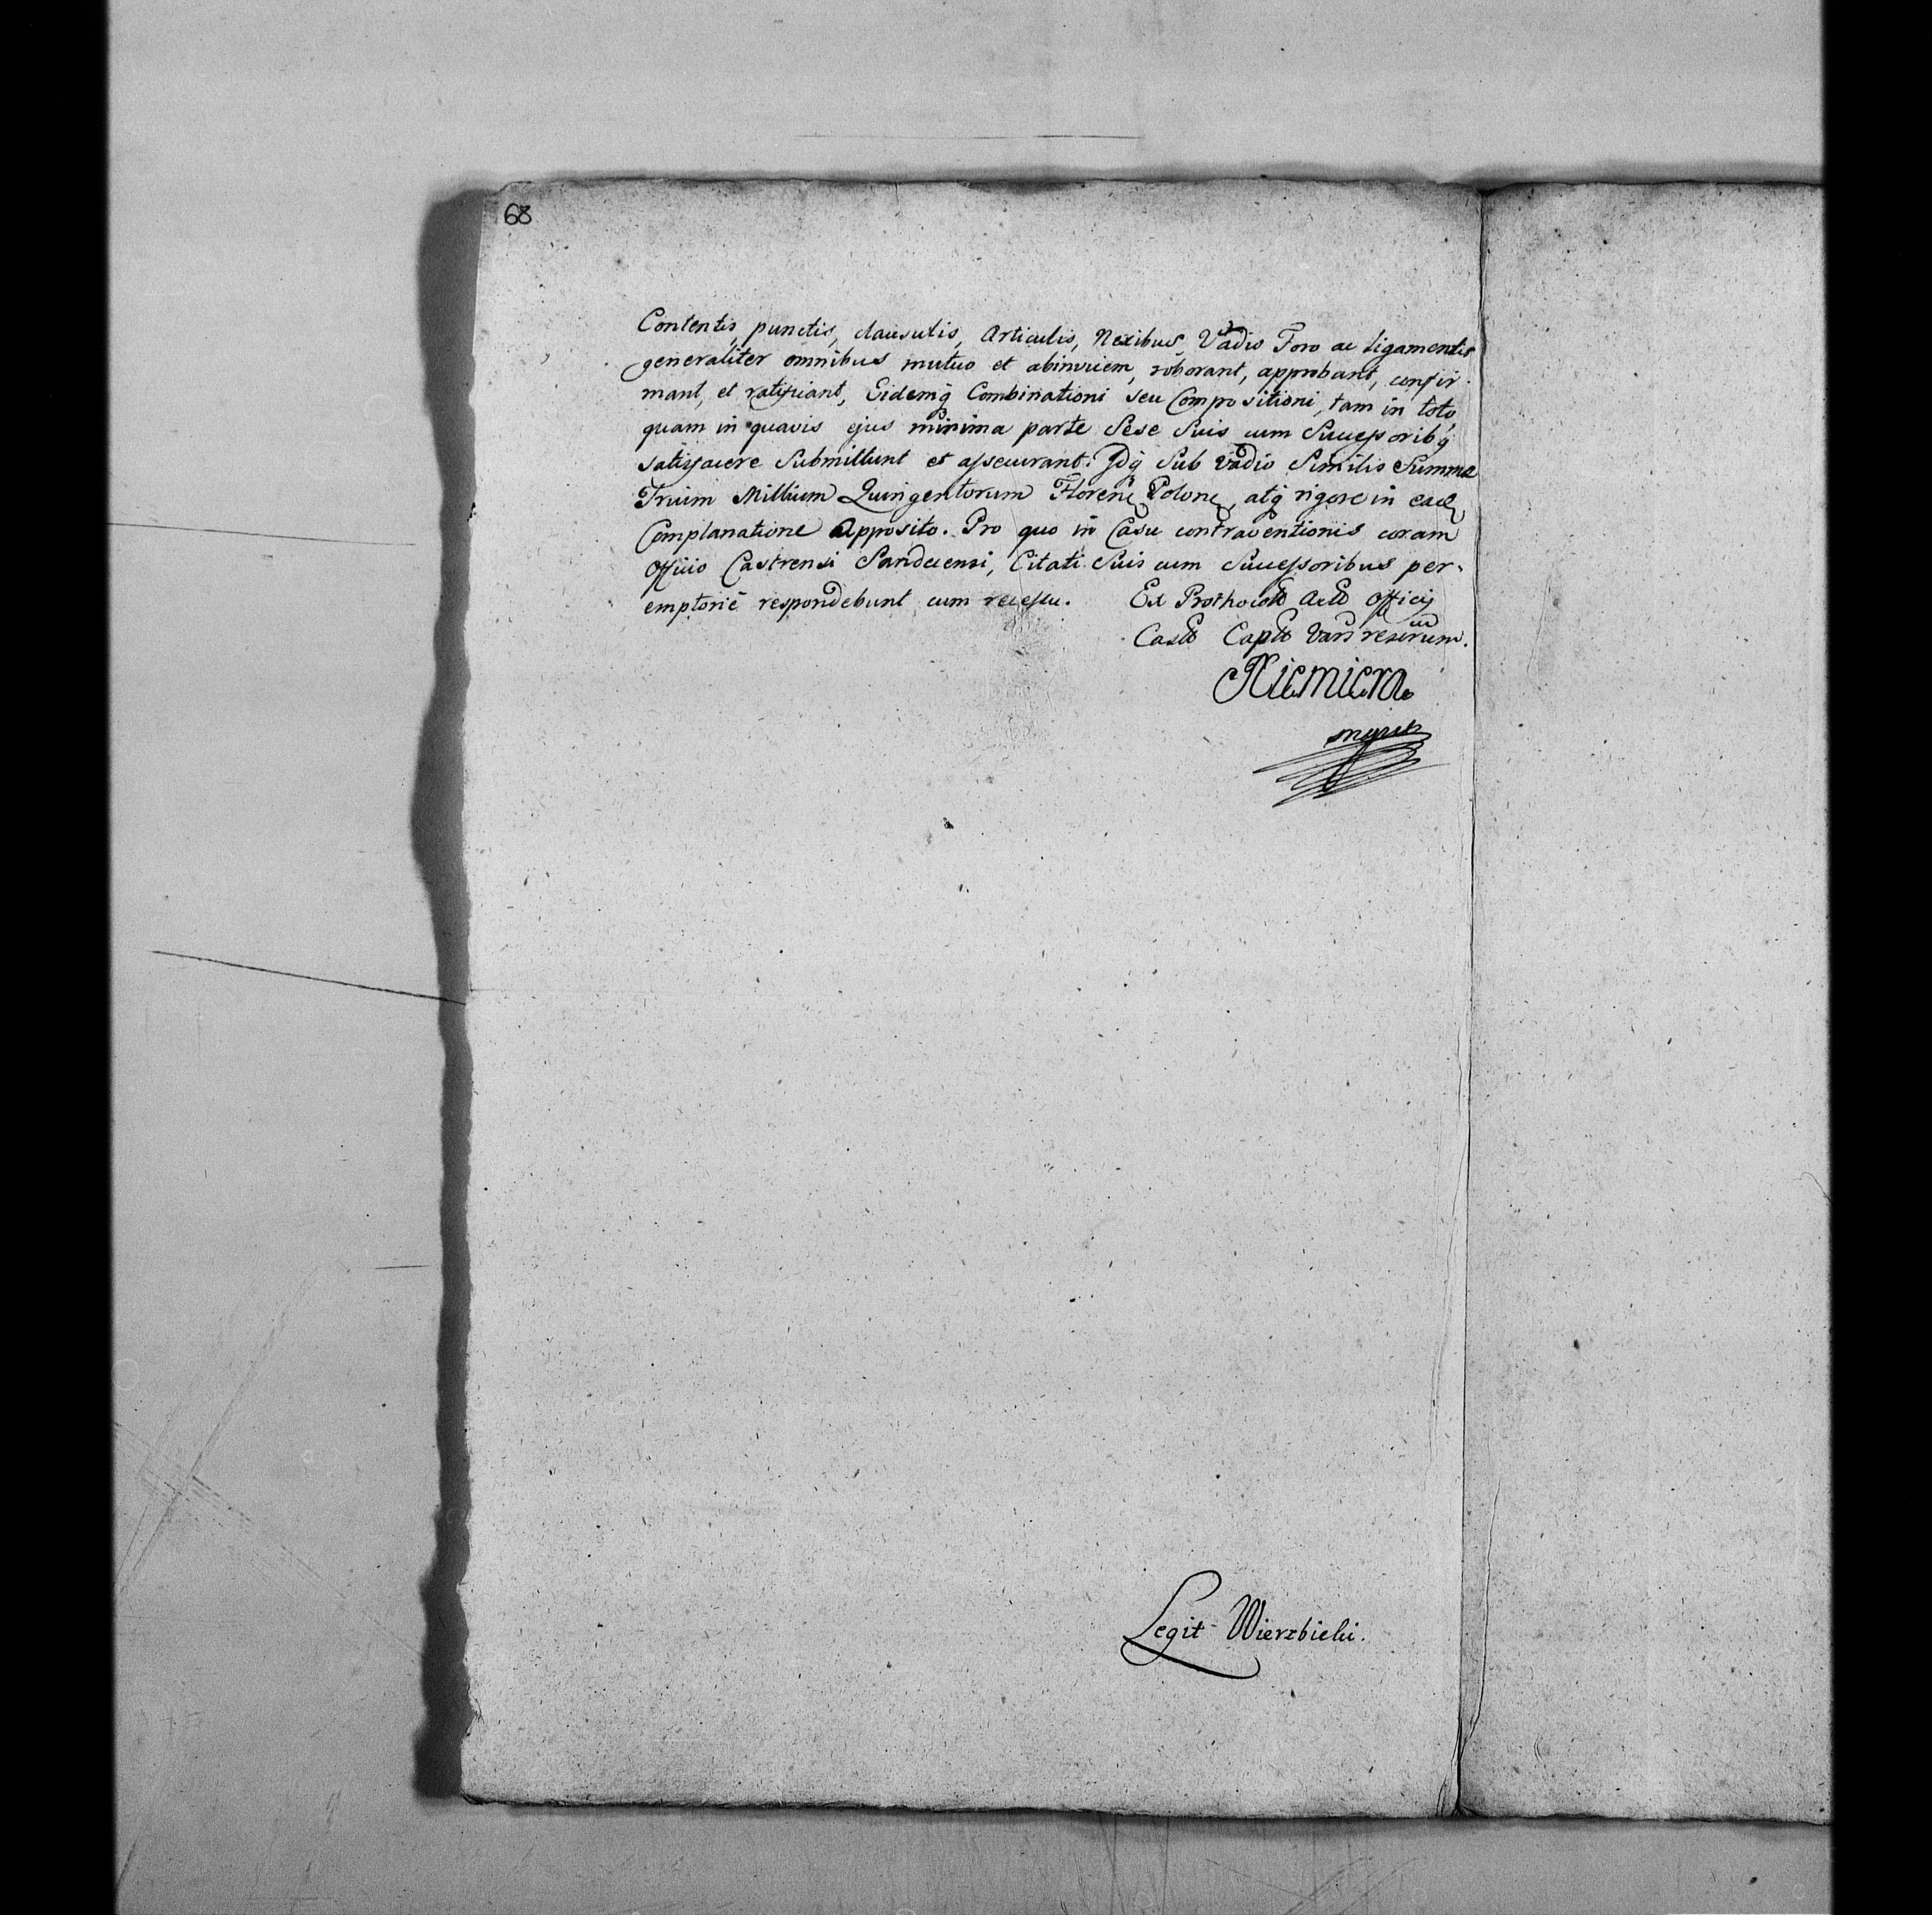 68
Contentis, punctis, clausulis, Articulis, Nexibus, Vadio Foro ac ligamentis
generaliter omnibus mutuo et abinvicem, roborant, approbant, confir-
mant, et ratificant, Eidemq̃ Combinationi seu Compositioni, tam in toto
quam in quavis ejus minima parte Sese Suis cum Successoribq̃
satisfacere Submittunt et assecurant. Idq̃ Sub Vadio Similis Summæ
Trium Millium Quingentorum Floren Polon, atq̃ rigore in ead
Complanatione Apposito. Pro quo in Casu contraventionis coram
Officio Castrensi Sandecensi, Citati Suis cum Successoribus per-
emptoriè respondebunt cum recessu. Ex Prothocoło Actł Officij
Castł Captł
Niemiera
mpt
Legit Wierzbicki.